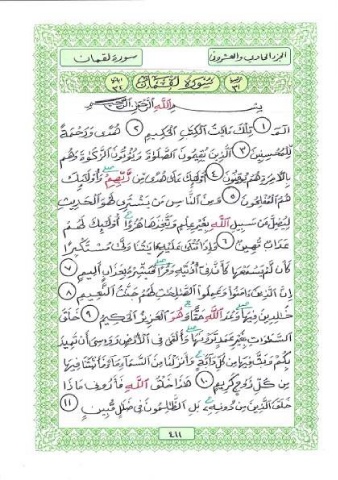 الجزء الحادي والعشرون سورة لقمان
٣١ سُورَةُ لُقْمَانَ ٣٤
بِسْمِ ٱللَّهِ ٱلرَّحْمَٰنِ ٱلرَّحِيمِ
الٓمٓ ١ تِلْكَ ءَايَٰتُ ٱلْكِتَٰبِ ٱلْحَكِيمِ ٢ هُدًى وَرَحْمَةً
لِّلْمُحْسِنِينَ ٣ ٱلَّذِينَ يُقِيمُونَ ٱلصَّلَوٰةَ وَيُؤْتُونَ ٱلزَّكَوٰةَ وَهُم
بِٱلْأَخِرَةِ هُمْ يُوقِنُونَ ٤ أُوْلَٰٓئِكَ عَلَىٰ هُدًى مِّن رَّبِّهِمْ وَأُوْلَٰٓئِكَ
هُمُ ٱلْمُفْلِحُونَ ٥ وَمِنَ ٱلنَّاسِ مَن يَشْتَرِى لَهْوَ ٱلْحَدِيثِ
لِيُضِلَّ عَن سَبِيلِ ٱللَّهِ بِغَيْرِ عِلْمٍ وَيَتَّخِذَهَا هُزُوًا أُوْلَٰٓئِكَ لَهُمْ
عَذَابٌ مُّهِينٌ ٦ وَإِذَا تُتْلَىٰ عَلَيْهِ ءَايَٰتُنَا وَلَّىٰ مُسْتَكْبِرًا
كَأَن لَّمْ يَسْمَعْهَا كَأَنَّ فِىٓ أُذُنَيْهِ وَقْرًا فَبَشِّرْهُ بِعَذَابٍ أَلِيمٍ ٧
إِنَّ ٱلَّذِينَ ءَامَنُوا۟ وَعَمِلُوا۟ ٱلصَّٰلِحَٰتِ لَهُمْ جَنَّٰتُ ٱلنَّعِيمِ ٨
خَٰلِدِينَ فِيهَا وَعْدَ ٱللَّهِ حَقًّا وَهُوَ ٱلْعَزِيزُ ٱلْحَكِيمُ ٩ خَلَقَ
ٱلسَّمَٰوَٰتِ بِغَيْرِ عَمَدٍ تَرَوْنَهَا وَأَلْقَىٰ فِى ٱلْأَرْضِ رَوَٰسِىَ أَن تَمِيدَ
بِكُمْ وَبَثَّ فِيهَا مِن كُلِّ دَآبَّةٍ وَأَنزَلْنَا مِنَ ٱلسَّمَآءِ مَآءً فَأَنۢبَتْنَا فِيهَا
مِن كُلِّ زَوْجٍ كَرِيمٍ ١٠ هَٰذَا خَلْقُ ٱللَّهِ فَأَرُونِى مَاذَا
خَلَقَ ٱلَّذِينَ مِن دُونِهِۦ بَلِ ٱلظَّٰلِمُونَ فِى ضَلَٰلٍ مُّبِينٍ ١١
٤١١